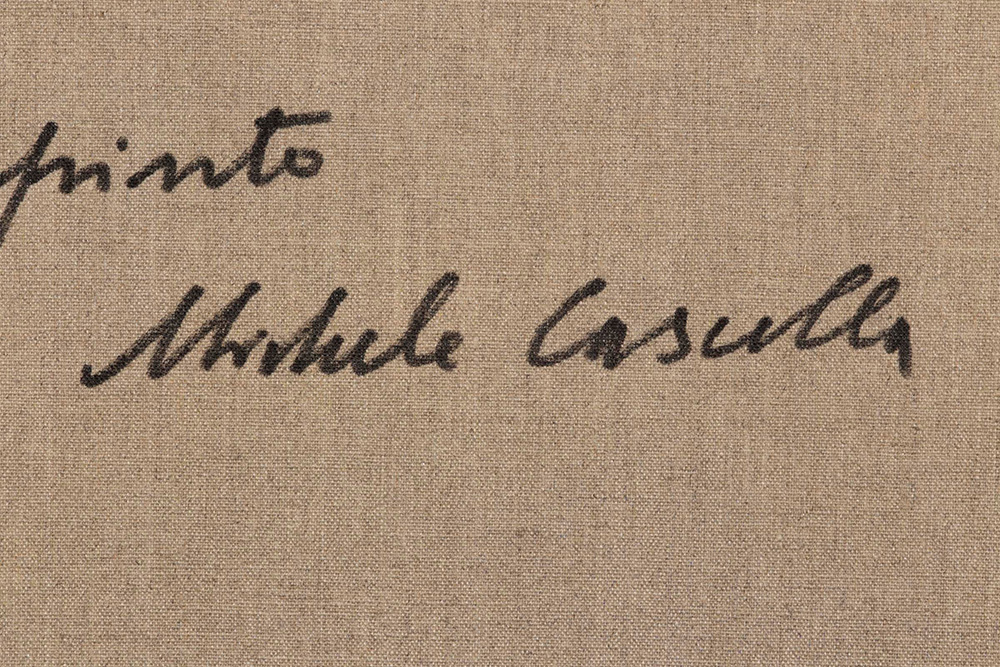 pinto
Michele Cascella